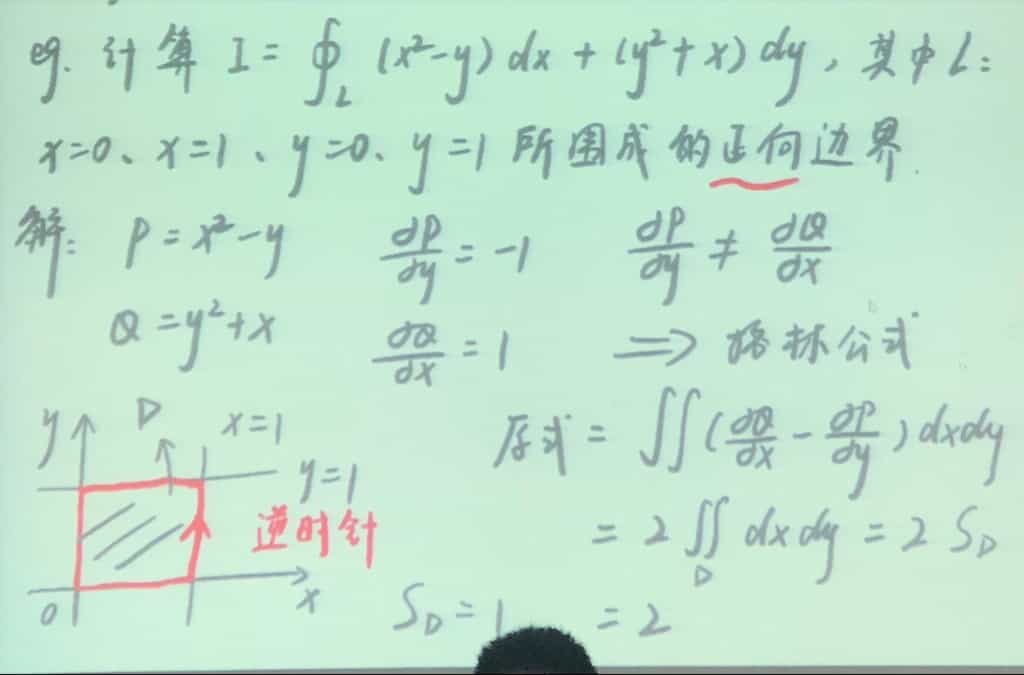 eg. 计算 I = ∮_L (x²-y) dx + (y²+x) dy, 其中L:
x=0、x=1、y=0、y=1 所围成的正向边界.
解: P = x²-y ∂P/∂y = -1 ∂P/∂y ≠ ∂Q/∂x
Q = y²+x ∂Q/∂x = 1 ⟹ 格林公式
y D x=1
y=1
逆时针
0 x
原式 = ∬(∂Q/∂x - ∂P/∂y) dxdy
= 2∬_D dxdy = 2 S_D
S_D = 1 = 2